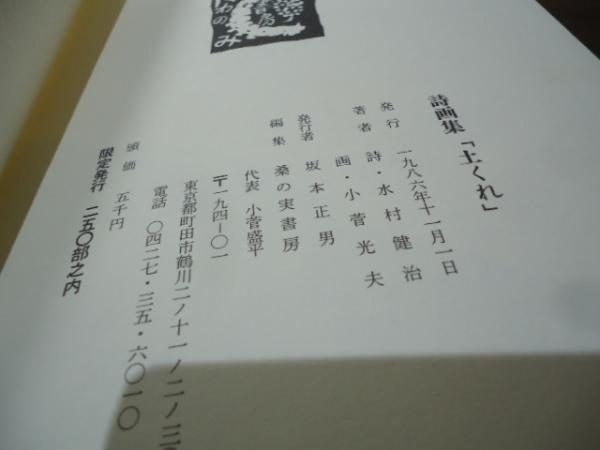 詩画集「土くれ」
発行 一九八六年十一月一日
著者 詩・水村健治
画・小菅光夫
発行者 坂本正男
編集 桑の実書房
代表 小菅盛平
〒一九四-〇一
東京都町田市鶴川二ノ十一ノ二ノ三
電話 〇四二七・三五・六〇一〇
頒価 五千円
限定発行 二五〇部之内
書房
わのみ